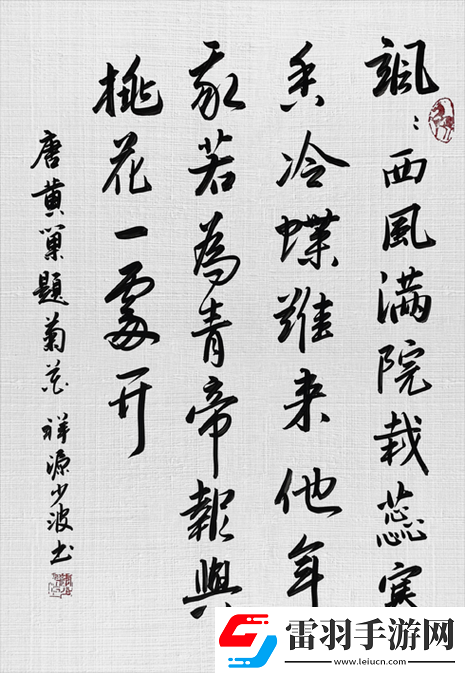 颯：西風满院栽蕊寒
香冷蝶難来他年
我若為青帝報與
桃花一處开
唐黄巢題菊花 祥源少波书
雷羽手游网
www.leiucn.com